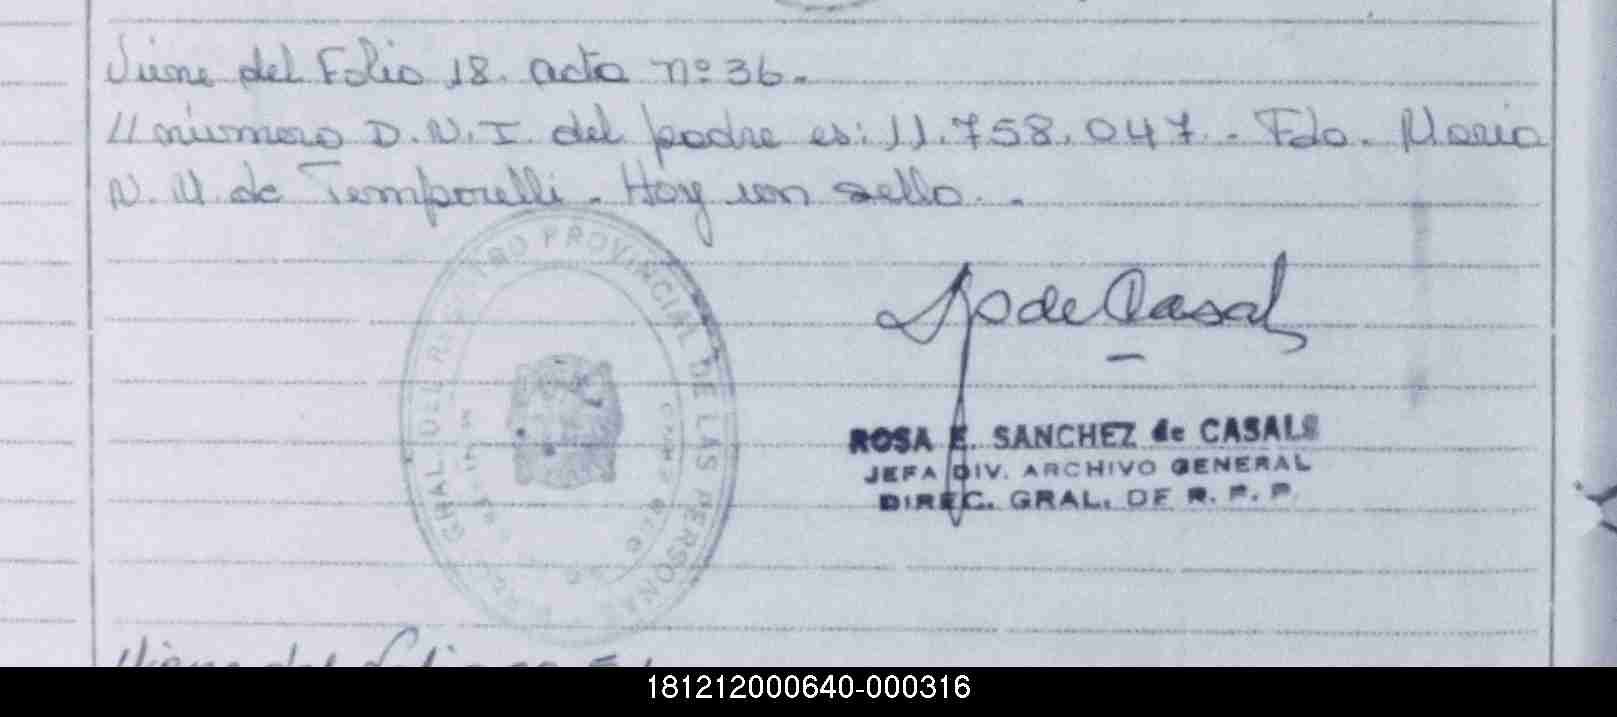 Viene del Folio 18. acta nº 36.
número D.N.I. del padre es: 11.758.047. - Fdo. Maria
N. M. de Temporelli. Hay un sello. -
REGISTRO PROVINCIAL DE LAS PERSONAS
GRAL. DEL
S. de Casals
ROSA E. SANCHEZ de CASALS
JEFA DIV. ARCHIVO GENERAL
DIREC. GRAL. DE R. P. P.
Viene del Folio
181212000640-000316